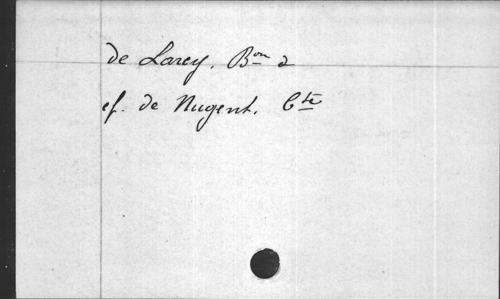 de Larey. Bon d
cf. de Nugent. Cte